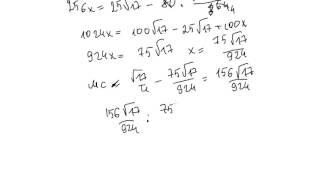 256x = 25√17 -
1024x = 100√17 - 25√17 + 100x
924x = 75√17 x = 75√17/924
MC = √17/4 - 75√17/924 = 156√17/924
156√17/924 : 75